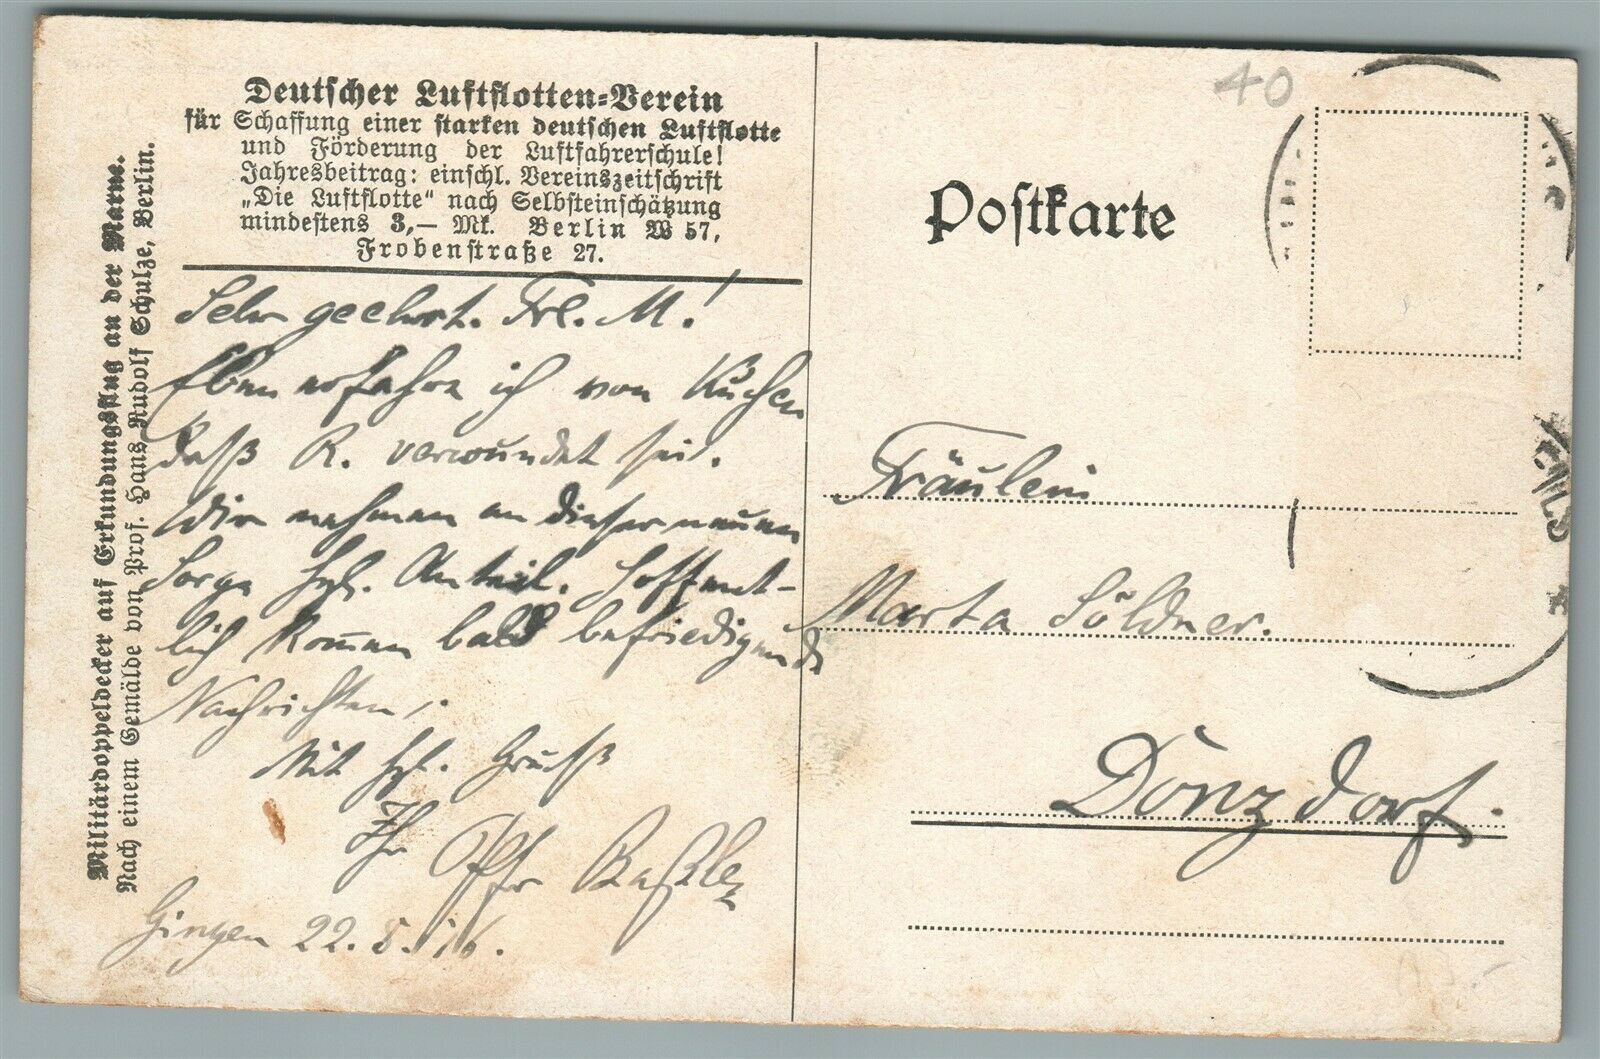 Deutscher Luftflotten-Verein
für Schaffung einer starken deutschen Luftflotte
und Förderung der Luftfahrerschule!
Jahresbeitrag: einschl. Vereinszeitschrift
„Die Luftflotte“ nach Selbsteinschätzung
mindestens 3,— Mk. Berlin W 57,
Frobenstraße 27.
Militärdoppeldecker auf Erkundungsflug an der Marne.
Nach einem Gemälde von Prof. Hans Rudolf Schulze, Berlin.
Sehr geehrt. Frl. M!
Eben erfahre ich von Kuchen
daß R. verwundet sei.
Wir nehmen an dieser neuen
Sorge hzl. Anteil. Hoffent-
lich kommen bald befriedigende
Nachrichten.
Mit hzl. Gruß
Ihr
Gingen 22. 5. 16.
40
Postkarte
Fräulein
Marta Söldner.
Donzdorf.